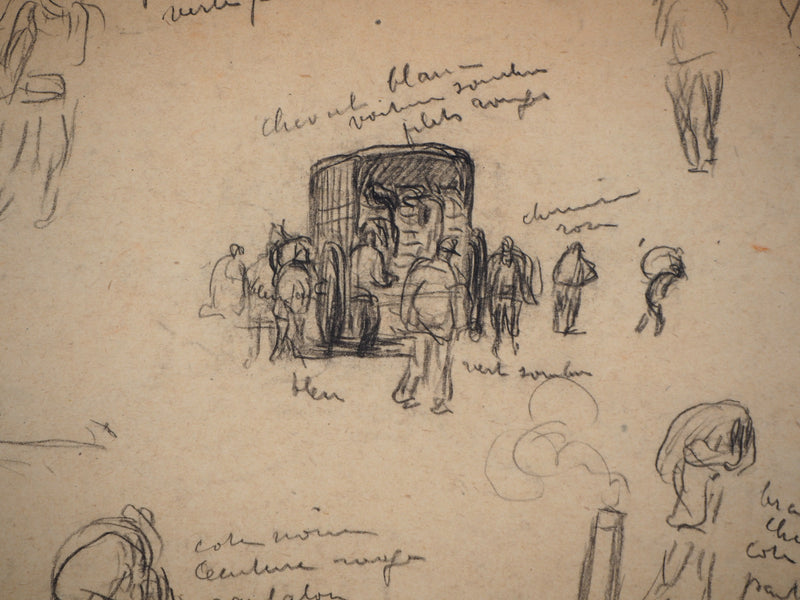 cheval blanc
voiture sombre
filets rouges
chemise
rose
bleu
vert sombre
cote noire
Ceinture rouge
pantalon